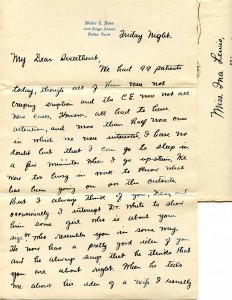 Walter E. Doss
Dallas, Texas
Friday Night.
My Dear Sweetheart,
We had 99 patients
today, though all of them were not
creeping eruption and the C.E. were not all
new cases. However, all had to have
attention, and more than half were ones
in which we were interested, I have no
doubt but that I can go to sleep in
a few minutes when I go upstairs. We
were too busy in most to know what
has been going on on the outside.
But I always think of you, Dear, and
occasionally I interrupt Dr. White to show
him some girl who is about your
size or who resembles you in some way.
He now has a pretty good idea of you
and he always says that he thinks that
you are about right. When he tells
me about his idea of a wife I usually
Miss Ina Lewis,